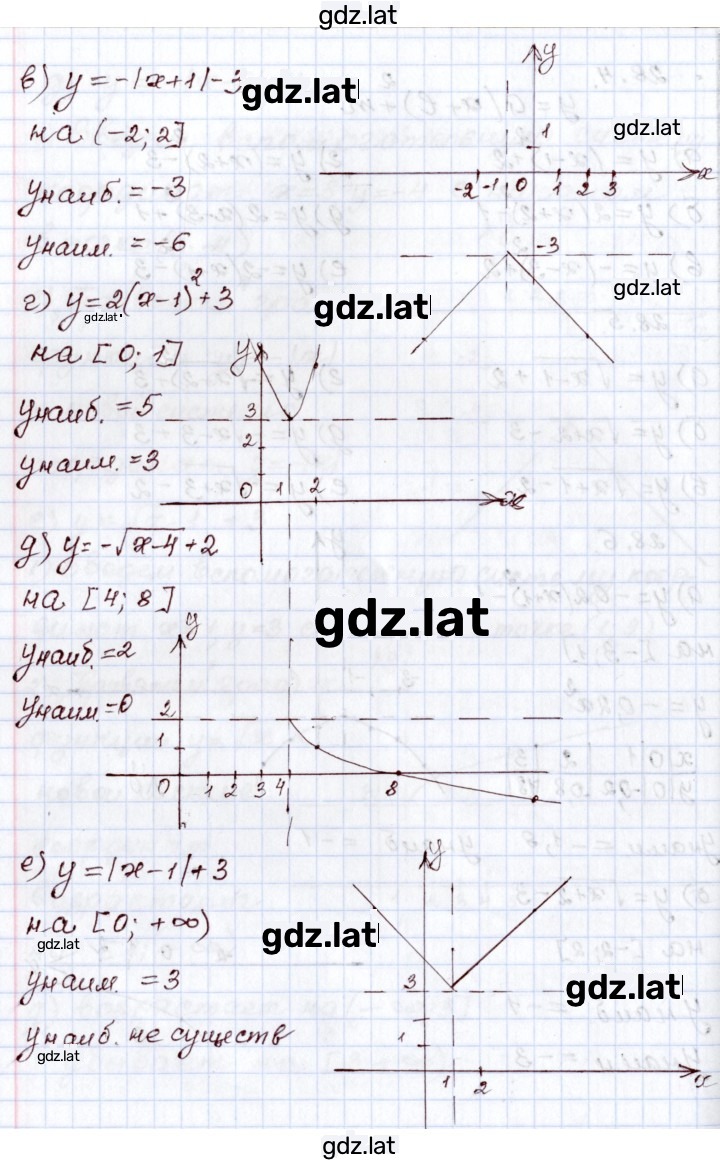 gdz.lat
в) y = -|x+1|-3
gdz.lat
на (-2; 2]
gdz.lat
yнаиб. = -3
yнаим. = -6
y
1
-2 -1 0 1 2 3 x
-3
gdz.lat
г) y = 2(x-1)² + 3
gdz.lat
gdz.lat
на [0; 1]
yнаиб. = 5
yнаим. = 3
y
3
2
0 1 2 x
д) y = -√x-4 + 2
на [4; 8]
gdz.lat
yнаиб. = 2
yнаим. = 0
y
2
1
0 1 2 3 4 8
е) y = |x-1| + 3
на [0; +∞)
gdz.lat
gdz.lat
yнаим. = 3
gdz.lat
yнаиб. не существ
gdz.lat
y
3
1
1 2 x
gdz.lat